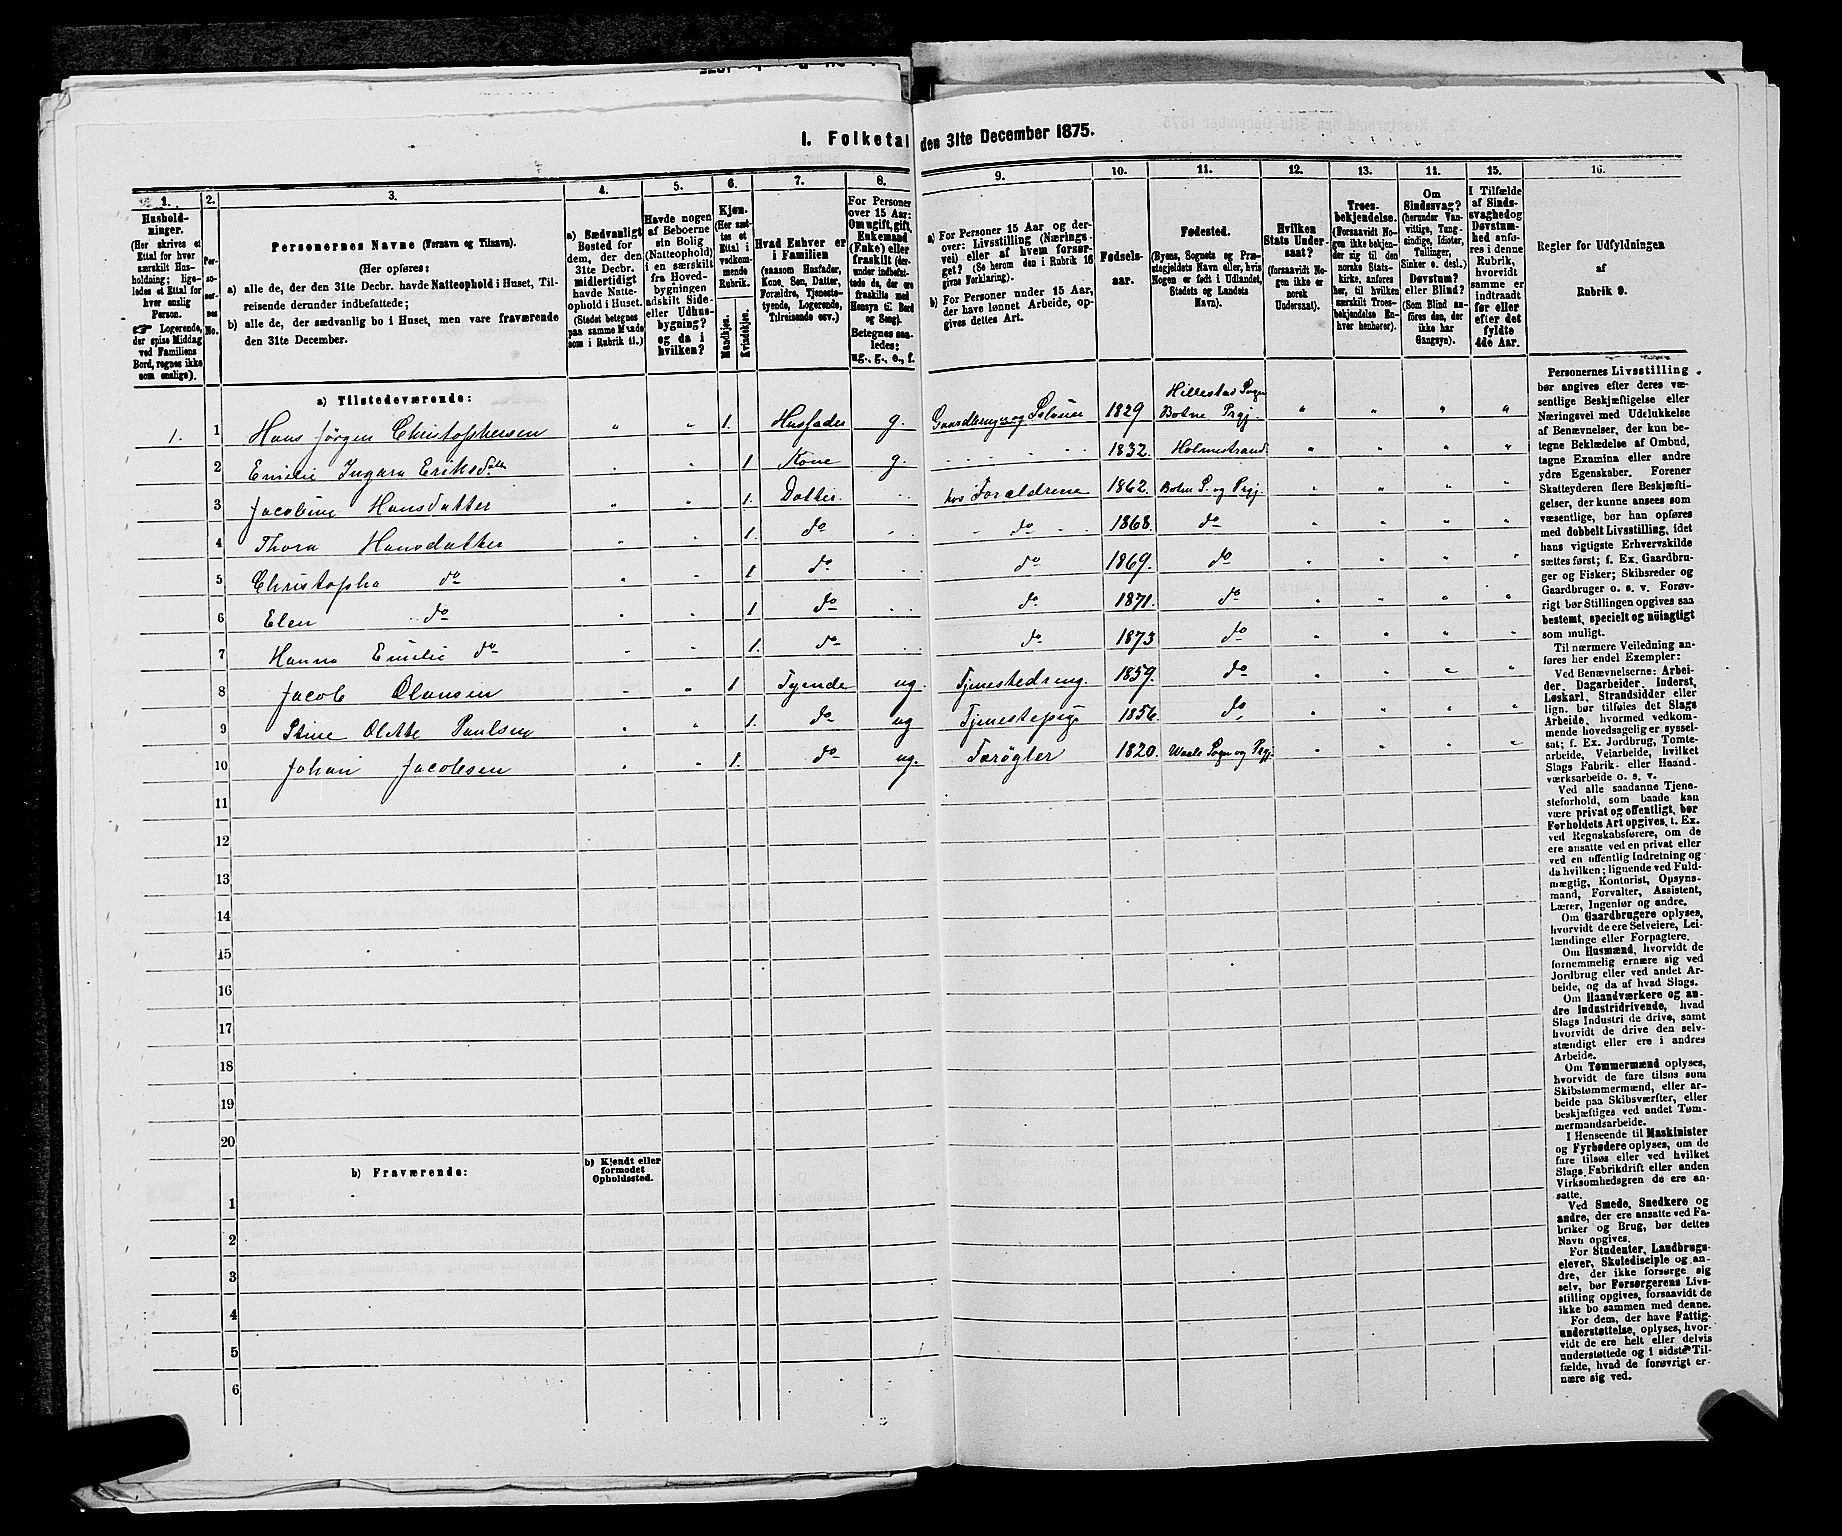 I. Folketal den 31te December 1875.
1.
Hushold-
ninger.
(Her skrives et
Ettal for hver
særskilt Hus-
holdning; lige-
ledes et Ettal for
hver enslig
Person.
☞ Logerende,
der spise Middag
ved Familiens
Bord, regnes ikke
som enslige).
2.
Per-
so-
ner-
nes
No.
3.
Personernes Navne (Fornavn og Tilnavn).
(Her opføres:
a) alle de, der den 31te Decbr. havde Natteophold i Huset, Til-
reisende derunder indbefattede;
b) alle de, der sædvanlig bo i Huset, men vare fraværende
den 31te December.
4.
a) Sædvanligt
Bosted for
dem, der den
31te Decbr.
midlertidigt
havde Natte-
ophold i Huset.
(Stedet betegnes
paa samme Maade
som i Rubrik 11.)
5.
Havde nogen
af Beboerne
sin Bolig
(Natteophold)
i en særskilt
fra Hoved-
bygningen
adskilt Side-
eller Udhus-
bygning?
og da i
hvilken?
6.
Kjøn.
(Her sæt-
tes et
Ettal i
vedkom-
mende
Rubrik.
Mandkjøn.
Kvindekjøn.
7.
Hvad Enhver er
i Familien
(saasom Husfader,
Kone, Søn, Datter,
Forældre, Tjeneste-
tyende, Logerende,
Tilreisende osv.)
8.
For Personer
over 15 Aar:
Om ugift, gift,
Enkemand
(Enke) eller
fraskilt (der-
under indbefat-
tede de, der ere
fraskilte med
Hensyn til Bord
og Seng).
Betegnes saa-
ledes:
ug., g., e., f.
9.
a) For Personer 15 Aar og der-
over: Livsstilling (Nærings-
vei) eller af hvem forsør-
get? (Se herom den i Rubrik 16
givne Forklaring).
b) For Personer under 15 Aar,
der have lønnet Arbeide, op-
gives dettes Art.
10.
Fødsels-
aar.
11.
Fødested.
(Byens, Sognets og Præ-
stegjeldets Navn, eller, hvis
Nogen er født i Udlandet,
Stedets og Landets
Navn).
12.
Hvilken
Stats Under-
saat?
(forsaavidt No-
gen ikke er
norsk
Undersaat).
13.
Troes-
bekjendelse.
(Forsaavidt No-
gen ikke bekjen-
der sig til den
norske Stats-
kirke, anføres
her, til hvilken
særskilt Troes-
bekjendelse En-
hver henhører).
14.
Om
Sindssvag?
(herunder Van-
vittige, Tung-
sindige, Idioter,
Tullinger,
Sinker o. desl.)
Døvstum?
eller Blind?
(Som Blind an-
føres den, der
ikke har
Gangsyn).
15.
I Tilfælde
af Sinds-
svaghed og
Døvstum-
hed anfø-
res i denne
Rubrik,
hvorvidt
samme er
indtraadt
før eller
efter det
fyldte
4de Aar.
16.
Regler for Udfyldningen
af
Rubrik 9.
a) Tilstedeværende:
1. 1 Hans Jörgen Christophersen " " 1. Husfader g. Gaardbruger og Selveier 1829 Hillestad Sogn Botne Prgj. " " " "
2 Emilie Ingara Eriksdatt " " 1 Kone g. 1832. Holmestrand " " " "
3 Jacobine Hansdatter " " 1. Datter hos Forældrene 1862. Botne S. og Prgj. " " " "
4 Thora Hansdatter " " 1. do do 1868. do " " " "
5 Christopha do " " 1 do do 1869. do " " " "
6 Elen do " " 1 do do 1871. do " " " "
7 Hanna Emilie do " " 1. do do 1873 do " " " "
8 Jacob Olansen " " 1 Tyende ug. Tjenestedreng 1859. do " " " "
9 Stine Olette Paulsen " " 1. do ug Tjenestepige 1856. do " " " "
10 Johan Jacobsen " " 1. do ug. 1820. Waale Sogn og Prgj. " " " "
11
12
13
14
15
16
17
18
19
20
b) Fraværende:
b) Kjendt eller
formodet
Opholdssted.
1
2
3
4
5
6
Personernes Livsstilling
bør angives efter deres væ-
sentlige Beskjæftigelse eller
Næringsvei med Udelukkelse
af Benævnelser, der kun be-
tegne Beklædelse af Ombud,
tagne Examina eller andre
ydre Egenskaber. Forener
Skatteyderen flere Beskjæfti-
gelser, der kunne ansees som
væsentlige, bør han opføres
med dobbelt Livsstilling, idet
hans vigtigste Erhvervskilde
sættes først; f. Ex. Gaardbru-
ger og Fisker; Skibsreder og
Gaardbruger o. s. v. Forøv-
rigt bør Stillingen opgives saa
bestemt, specielt og nöiagtigt
som muligt.
Til nærmere Veiledning an-
føres her endel Exempler:
Ved Benævnelserne: Arbei-
der, Dagarbeider, Inderst,
Løskarl, Strandsidder eller
lign. bør tilføies det Slags
Arbeide, hvormed vedkom-
mende hovedsagelig er syssel-
sat; f. Ex. Jordbrug, Tomte-
arbeide, Veiarbeide, hvilket
Slags Fabrik- eller Haand-
værksarbeide o. s. v.
Ved alle saadanne Tjene-
steforhold, som baade kan
være privat og offentligt, bør
Forholdets Art opgives, f. Ex.
ved Regnskabsførere, om de
ere ansatte ved en privat eller
ved en offentlig Indretning og
da hvilken; lignende ved Fuld-
mægtig, Kontorist, Opsyns-
mand, Forvalter, Assistent,
Lærer, Ingeniør og andre.
Om Gaardbrugere oplyses,
hvorvidt de ere Selveiere, Lei-
lændinge eller Forpagtere.
Om Husmænd, hvorvidt de
fornemmelig ernære sig ved
Jordbrug eller ved andet Ar-
beide, og da af hvad Slags.
Om Haandværkere og an-
dre Industridrivende, hvad
Slags Industri de drive, samt
hvorvidt de drive den selv-
stændigt eller ere i andres
Arbeide.
Om Tømmermænd oplyses,
hvorvidt de fare tilsøs som
Skibstømmermænd, eller ar-
beide paa Skibsværfter, eller
beskjæftiges ved andet Tøm-
mermandsarbeide.
I Henseende til Maskinister
og Fyrbødere oplyses, om de
fare tilsøs eller ved hvilket
Slags Fabrikdrift eller anden
Virksomhedsgren de ere an-
satte.
Ved Smede, Snedkere og
andre, der ere ansatte ved Fa-
briker og Brug, bør dettes
Navn opgives.
For Studenter, Landbrugs-
elever, Skoledisciple og an-
dre, der ikke forsørge sig
selv, bør Forsørgerens Livs-
stilling opgives, forsaavidt de
ikke bo sammen med denne.
For dem, der have Fattig-
understøttelse, oplyses, hvor-
vidt de ere helt eller delvis
understøttede og i sidste Til-
fælde, hvad de forøvrigt er-
nære sig ved.